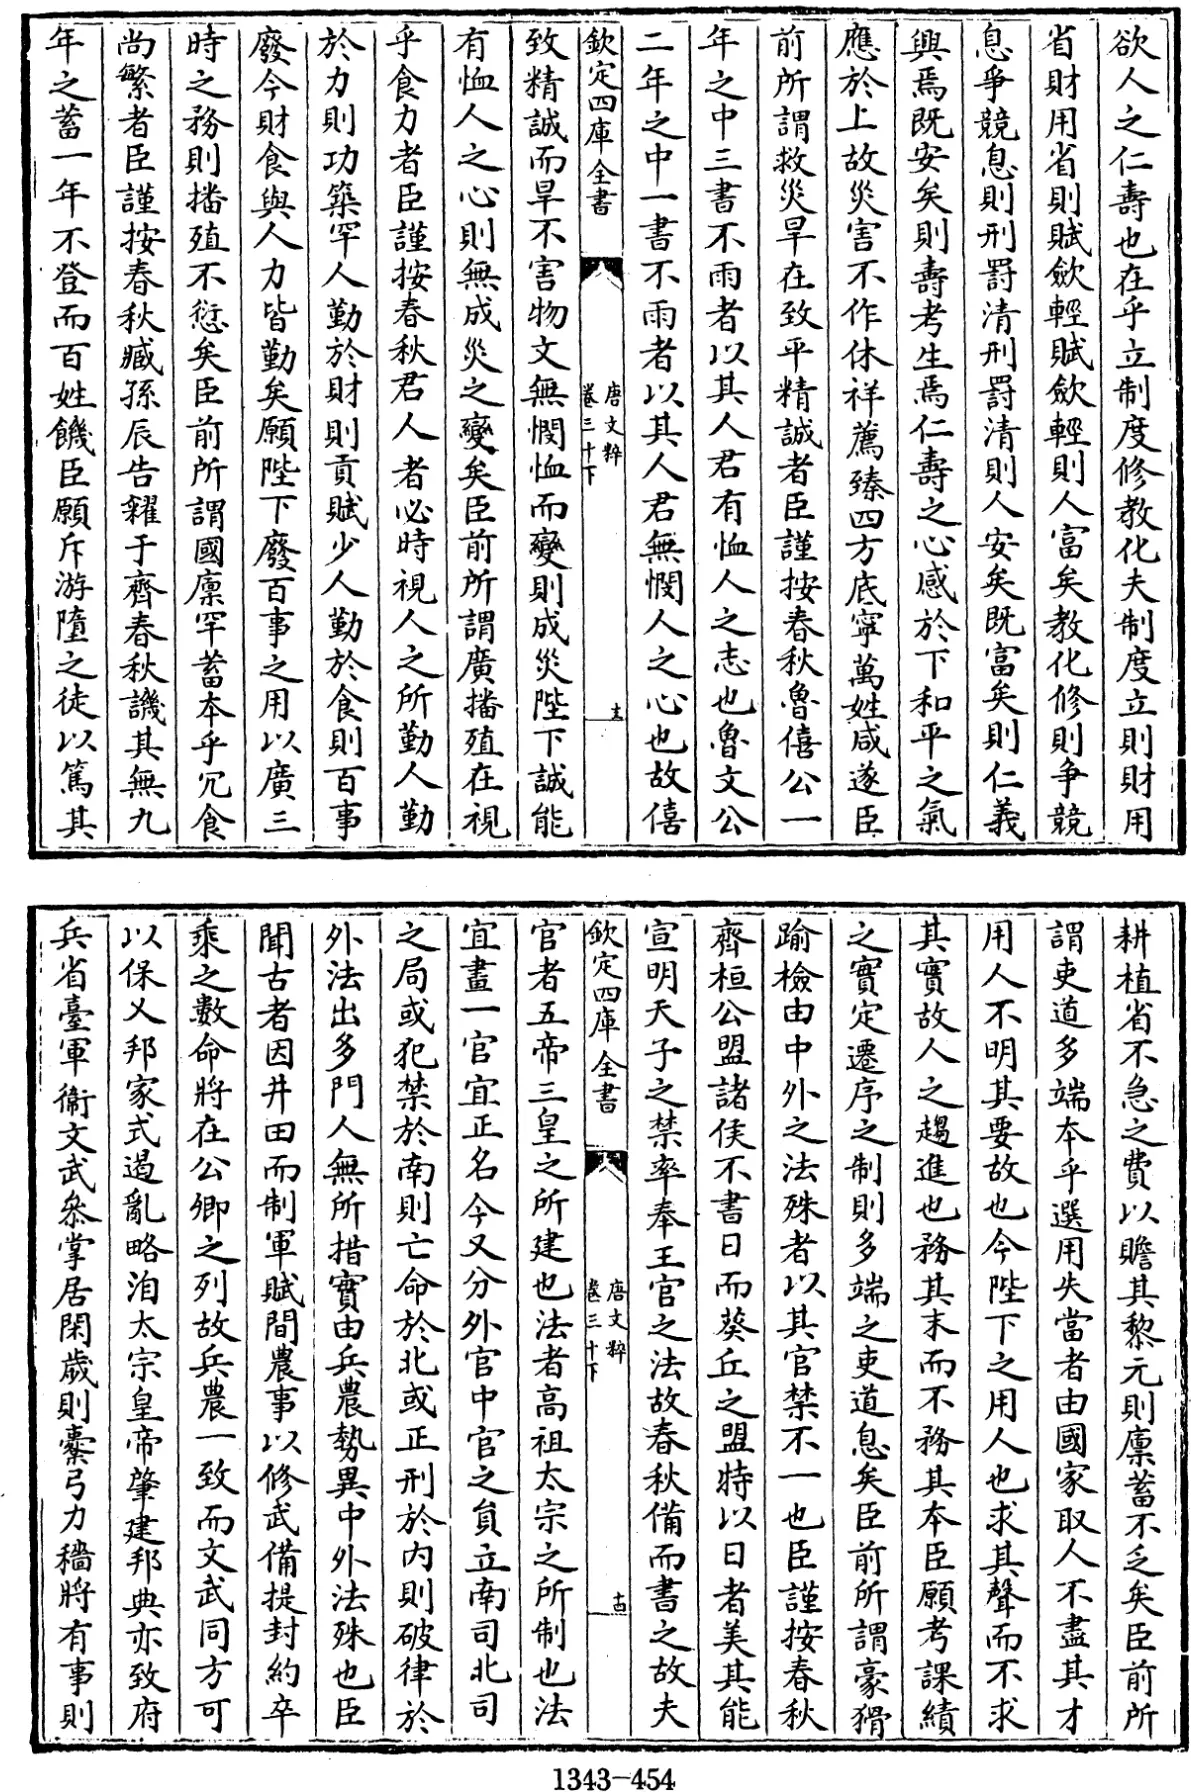 欲人之仁壽也在乎立制度修教化夫制度立則財用
省財用省則賦歛輕賦歛輕則人富矣教化修則爭競
息爭競息則刑罰清刑罰清則人安矣既富矣則仁義
興焉既安矣則壽考生焉仁壽之心感於下和平之氣
應於上故災害不作休祥薦臻四方底寧萬姓咸遂臣
前所謂救災旱在致平精誠者臣謹按春秋魯僖公一
年之中三書不雨者以其人君有恤人之志也魯文公
二年之中一書不雨者以其人君無憫人之心也故僖
欽定四庫全書
唐文粹
卷三十下
十三
致精誠而旱不害物文無憫恤而變則成災陛下誠能
有恤人之心則無成災之變矣臣前所謂廣播殖在視
乎食力者臣謹按春秋君人者必時視人之所勤人勤
於力則功築罕人勤於財則貢賦少人勤於食則百事
廢今財食與人力皆勤矣願陛下廢百事之用以廣三
時之務則播殖不愆矣臣前所謂國廪罕蓄本乎冗食
尚繁者臣謹按春秋臧孫辰告糴于齊春秋譏其無九
年之蓄一年不登而百姓饑臣願斥游墮之徒以篤其
耕植省不急之費以贍其黎元則廪蓄不乏矣臣前所
謂吏道多端本乎選用失當者由國家取人不盡其才
用人不明其要故也今陛下之用人也求其聲而不求
其實故人之趨進也務其末而不務其本臣願考課績
之實定遷序之制則多端之吏道息矣臣前所謂豪猾
踰檢由中外之法殊者以其官禁不一也臣謹按春秋
齊桓公盟諸侯不書日而葵丘之盟特以日者美其能
宣明天子之禁率奉王官之法故春秋備而書之故夫
欽定四庫全書
唐文粹
卷三十下
十四
官者五帝三皇之所建也法者高祖太宗之所制也法
宜畫一官宜正名今又分外官中官之員立南司北司
之局或犯禁於南則亡命於北或正刑於內則破律於
外法出多門人無所措實由兵農勢異中外法殊也臣
聞古者因井田而制軍賦間農事以修武備提封約卒
乘之數命將在公卿之列故兵農一致而文武同方可
以保乂邦家式遏亂略洎太宗皇帝肇建邦典亦致府
兵省臺軍衞文武叅掌居閑歲則櫜弓力穡將有事則
1343-454